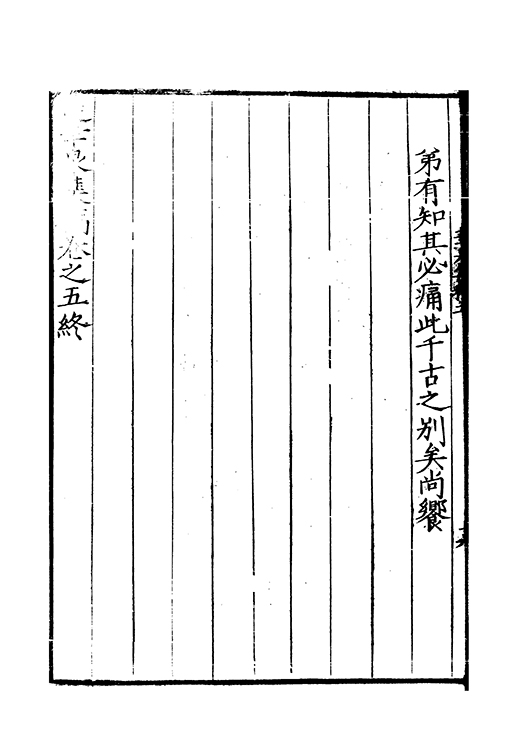 弟有知其必痛此千古之別矣尚饗
卷之五終